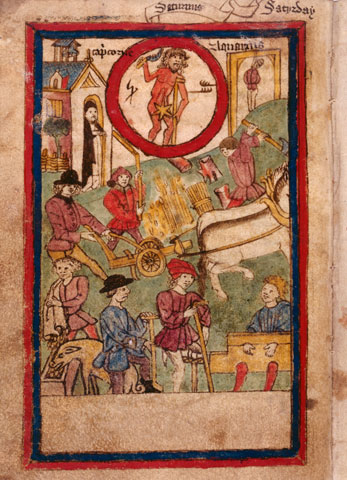 Saturnus Saturday
Capricornus Aquarius